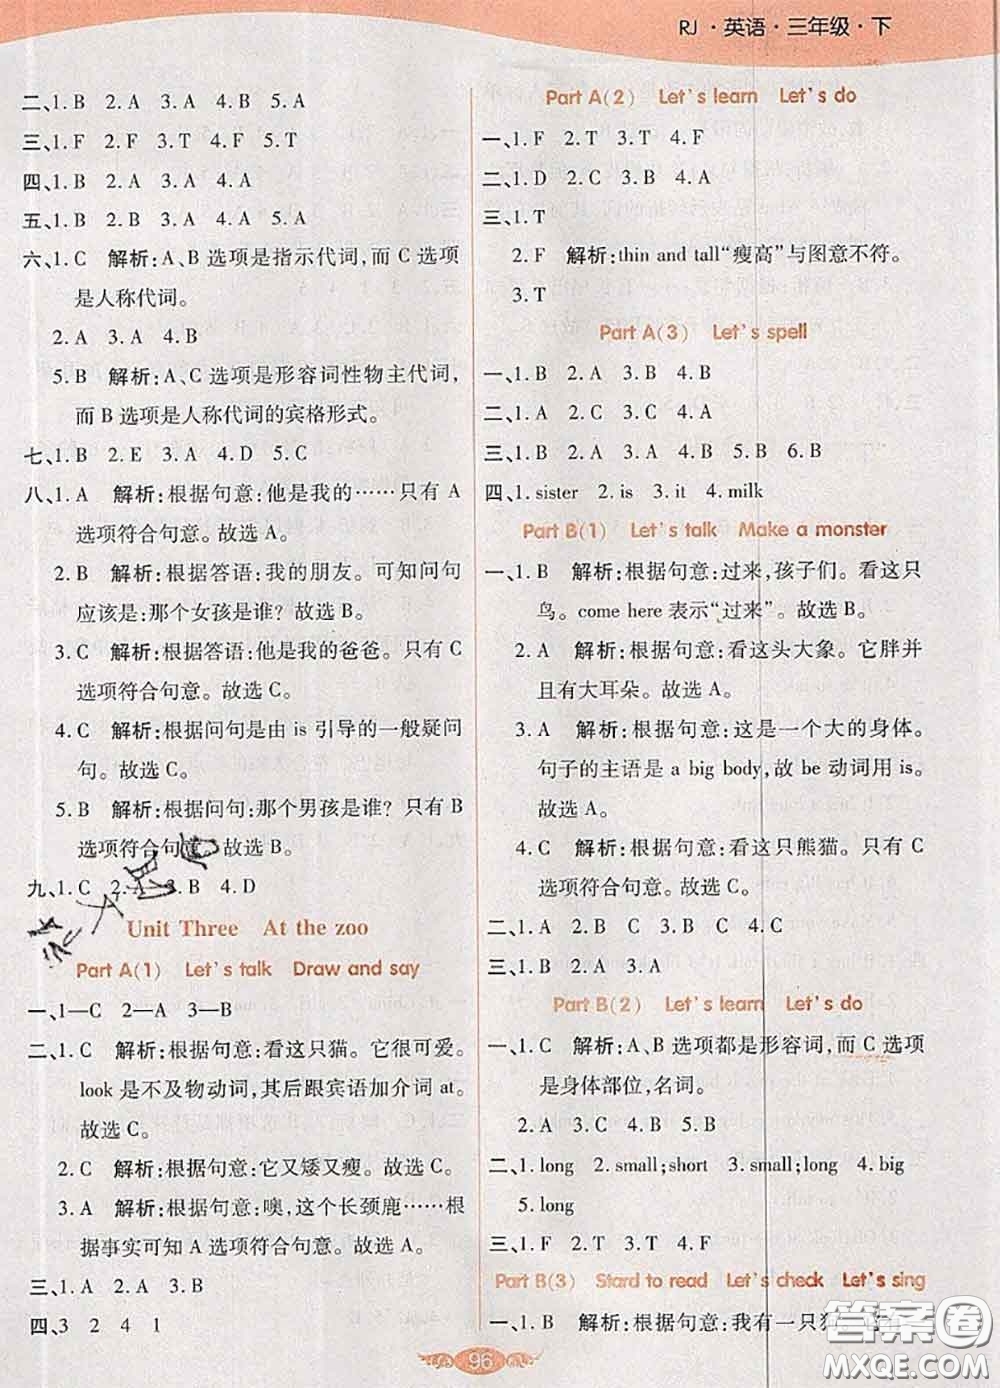 RJ · 英语 · 三年级 · 下
二、1. B 2. A 3. A 4. B 5. A
三、1. F 2. F 3. T 4. F 5. T
四、1. B 2. A 3. A 4. A
五、1. B 2. B 3. A 4. A 5. A
六、1. C 解析:A、B 选项是指示代词,而 C 选项
是人称代词。
2. A 3. A 4. B
5. B 解析:A、C 选项是形容词性物主代词,
而 B 选项是人称代词的宾格形式。
七、1. B 2. E 3. A 4. D 5. C
八、1. A 解析:根据句意:他是我的……只有 A
选项符合句意。故选 A。
2. B 解析:根据答语:我的朋友。可知问句
应该是:那个女孩是谁? 故选 B。
3. C 解析:根据答语:他是我的爸爸。只有 C
选项符合句意。故选 C。
4. C 解析:根据问句是由 is 引导的一般疑问
句。故选 C。
5. B 解析:根据问句:那个男孩是谁? 只有 B
选项符合句意。故选 B。
九、1. C 2. A 3. B 4. D
Unit Three At the zoo
Part A(1) Let's talk Draw and say
一、1—C 2—A 3—B
二、1. C 解析:根据句意:看这只猫。它很可爱。
look 是不及物动词,其后跟宾语加介词 at。
故选 C。
2. C 解析:根据句意:它又矮又瘦。故选 C。
3. A 解析:根据句意:噢,这个长颈鹿……根
据事实可知 A 选项符合句意。故选 A。
三、1. A 2. A 3. B
四、3 2 4 1
Part A(2) Let's learn Let's do
一、1. F 2. T 3. T 4. F
二、1. D 2. C 3. B 4. A
三、1. T
2. F 解析:thin and tall“瘦高”与图意不符。
3. T
Part A(3) Let's spell
一、1. B 2. A 3. B 4. B
二、1. A 2. C 3. C 4. A
三、1. B 2. B 3. A 4. B 5. B 6. B
四、1. sister 2. is 3. it 4. milk
Part B(1) Let's talk Make a monster
一、1. B 解析:根据句意:过来,孩子们。看这只
鸟。come here 表示“过来”。故选 B。
2. A 解析:根据句意:看这头大象。它胖并
且有大耳朵。故选 A。
3. A 解析:根据句意:这是一个大的身体。
句子的主语是 a big body,故 be 动词用 is。
故选 A。
4. C 解析:根据句意:看这只熊猫。故 C 选
项符合句意。故选 C。
二、1. A 2. B 3. C 4. C 5. C
三、1. B 2. A 3. A 4. B
Part B(2) Let's learn Let's do
一、1. C 解析:A、B 选项都是形容词,而 C 选项
是身体部位,名词。
2. A 3. C 4. B 5. B
二、1. long 2. small;short 3. small;long 4. big
5. long
三、1. F 2. T 3. T 4. F
Part B(3) Stard to read Let's check Let's sing
一、1. B 解析:根据句意:我有一只猫。
96
答案圈
MXQE.COM